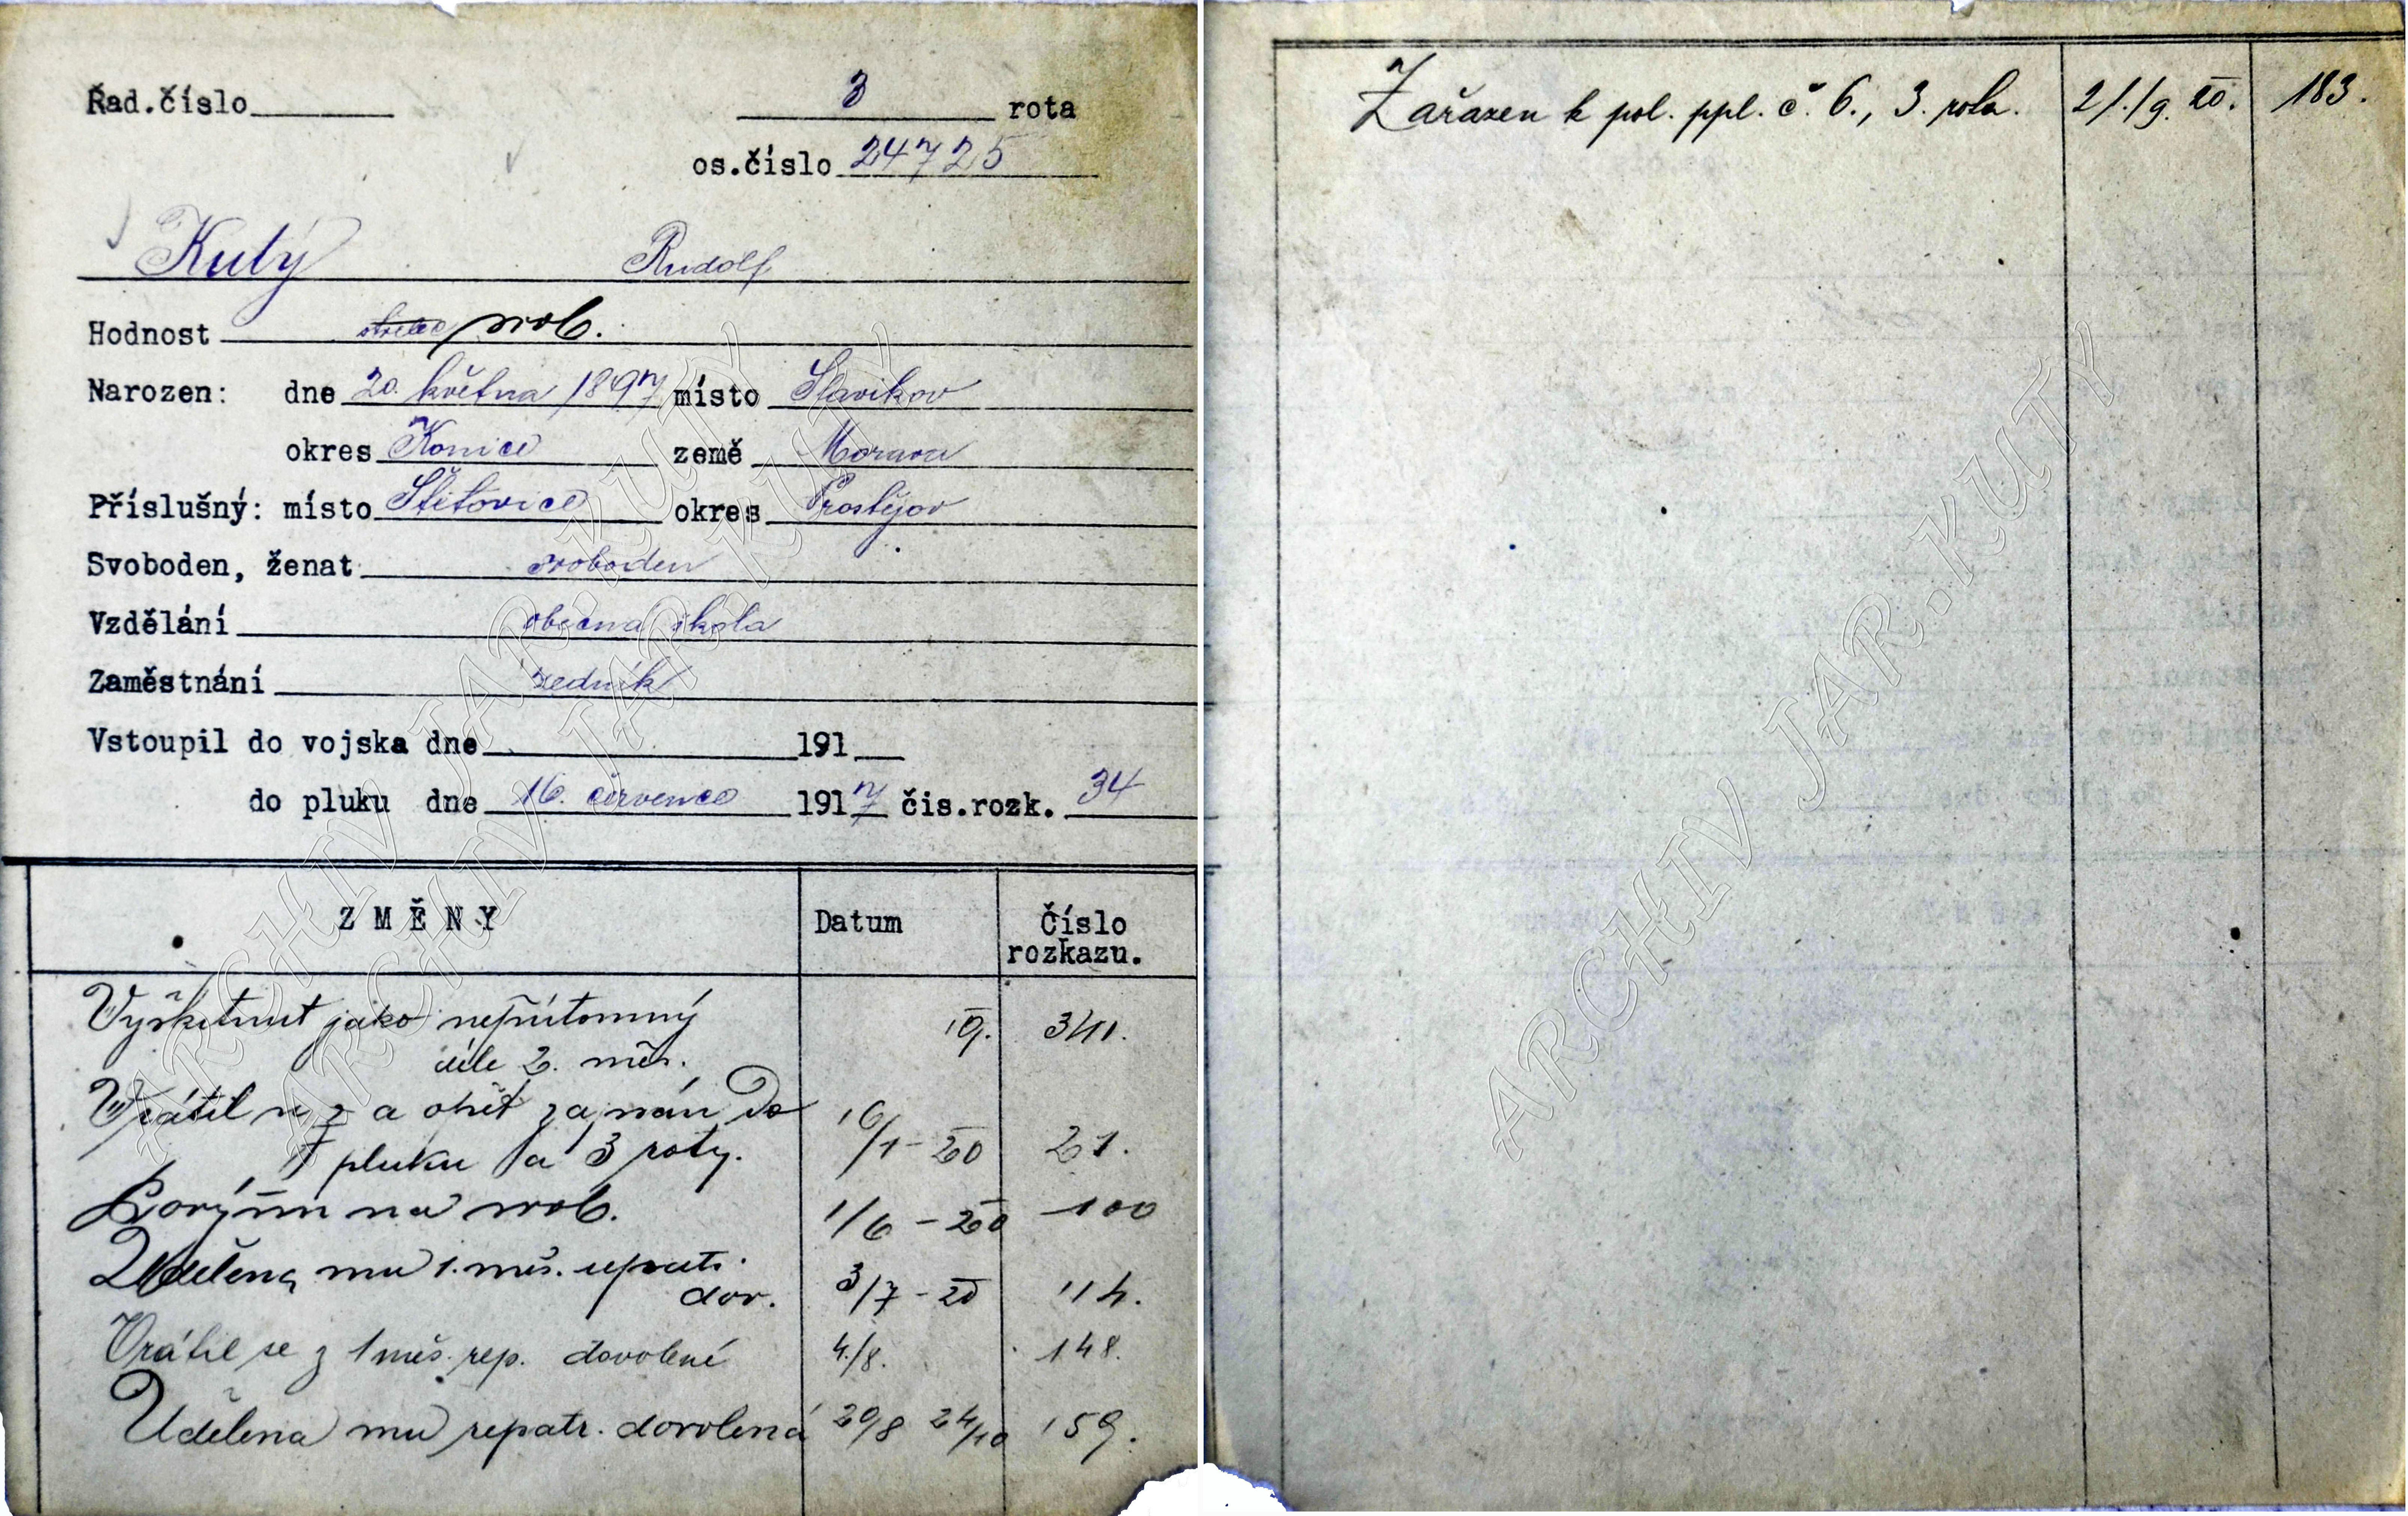 Řad.číslo 3 rota
os.číslo 24725
Kutý Rudolf
Hodnost střelec svob.
Narozen: dne 20. května 1897 místo Slavikov
okres Konice země Morava
Příslušný: místo Štětovice okres Prostějov
Svoboden, ženat svoboden
Vzdělání obecná škola
Zaměstnání zedník
Vstoupil do vojska dne 191
do pluku dne 16. července 1917 čis.rozk. 34
ZMĚNY Datum Číslo
rozkazu.
Vyškrtnut jako nepřítomný 19. 341.
déle 2. měs.
Vrátil se a opět zapsán do 16/1-20 21.
7 pluku a 3 roty.
Povýšen na svob. 1/6-20 100
Udělena mu 1. měs. repatr. 3/7-20 114.
dov.
Vrátil se z 1 měs. rep. dovolené 4./8. 148.
Udělena mu repatr. dovolená 20/8 24/10 159.
Zařazen k pol. ppl. č. 6., 3. rota. 21./9. 20. 183.
ARCHIV JAR.KUTY
ARCHIV JAR.KUTY
ARCHIV JAR.KUTY